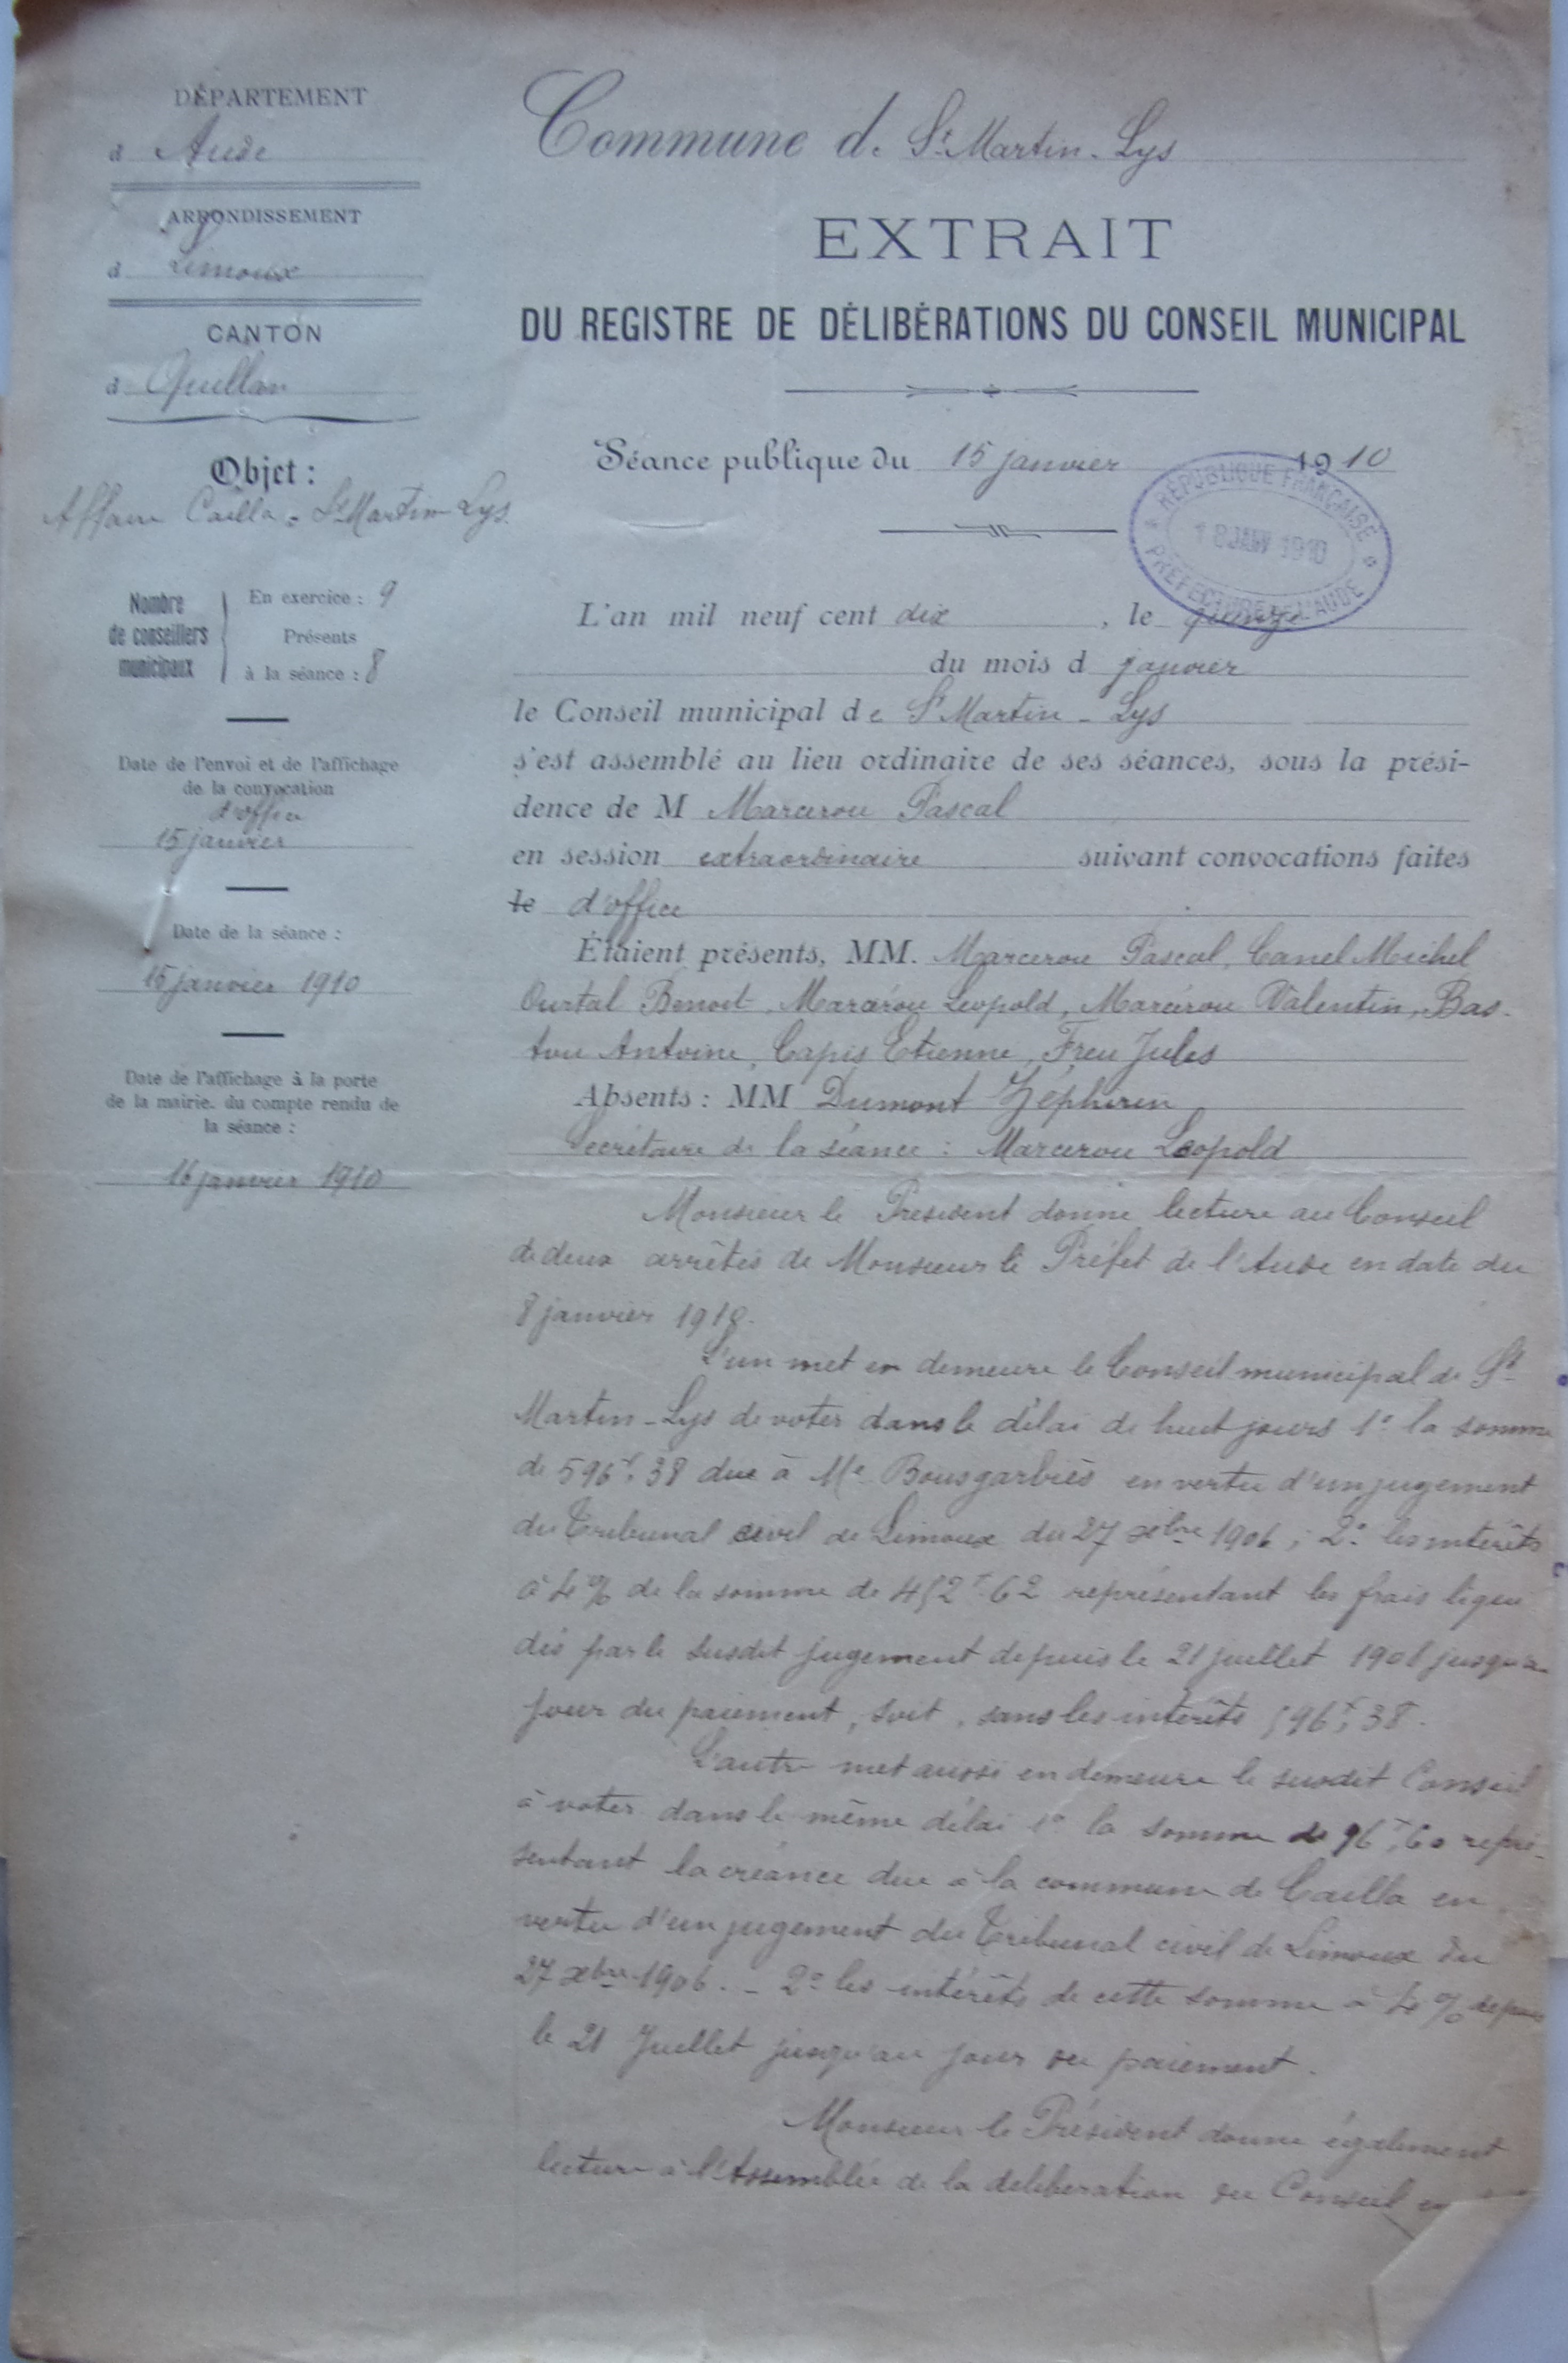 DÉPARTEMENT
d Aude
ARRONDISSEMENT
d Limoux
CANTON
d Quillan
Objet :
Affaire Cailla - St Martin-Lys.
Nombre de conseillers municipaux
En exercice : 9
Présents
à la séance : 8
Date de l'envoi et de l'affichage
de la convocation
d'office
15 janvier
Date de la séance :
15 janvier 1910
Date de l'affichage à la porte
de la mairie, du compte rendu de
la séance :
16 janvier 1910
Commune de St Martin-Lys
EXTRAIT
DU REGISTRE DE DÉLIBÉRATIONS DU CONSEIL MUNICIPAL
Séance publique du 15 janvier 1910
RÉPUBLIQUE FRANÇAISE
18 JANV 1910
PRÉFECTURE DE L'AUDE
L'an mil neuf cent dix, le quinze
du mois d janvier
le Conseil municipal de St Martin-Lys
s'est assemblé au lieu ordinaire de ses séances, sous la prési-
dence de M Marcerou Pascal
en session extraordinaire suivant convocations faites
le d'office
Étaient présents, MM. Marcerou Pascal, Canel Michel
Ourtal Benoit, Marcérou Leopold, Marcérou Valentin, Bas-
tou Antoine, Capis Etienne, Freu Jules
Absents : MM Dumont Zéphirin
Secrétaire de la séance : Marcerou Leopold
Monsieur le Président donne lecture au Conseil
de deux arrêtés de Monsieur le Préfet de l'Aude en date du
8 janvier 1910.
L'un met en demeure le Conseil municipal de St
Martin-Lys de voter dans le délai de huit jours 1° la somme
de 596f,38 due à Me Bousgarbiès en vertu d'un jugement
du Tribunal civil de Limoux du 27 xbre 1906 ; 2° les intérêts
à 4% de la somme de 452f.62 représentant les frais liqui
dés par le susdit jugement depuis le 21 juillet 1906 jusqu'au
jour du paiement, soit, sans les intérêts 596f,38.
L'autre met aussi en demeure le susdit Conseil
à voter dans le même délai 1° la somme de 96f,60 repré-
sentant la créance due à la commune de Cailla en
vertu d'un jugement du Tribunal civil de Limoux du
27 xbre 1906. - 2° les intérêts de cette somme à 4% depuis
le 21 Juillet jusqu'au jour du paiement.
Monsieur le Président donne également
lecture à l'Assemblée de la délibération du Conseil en